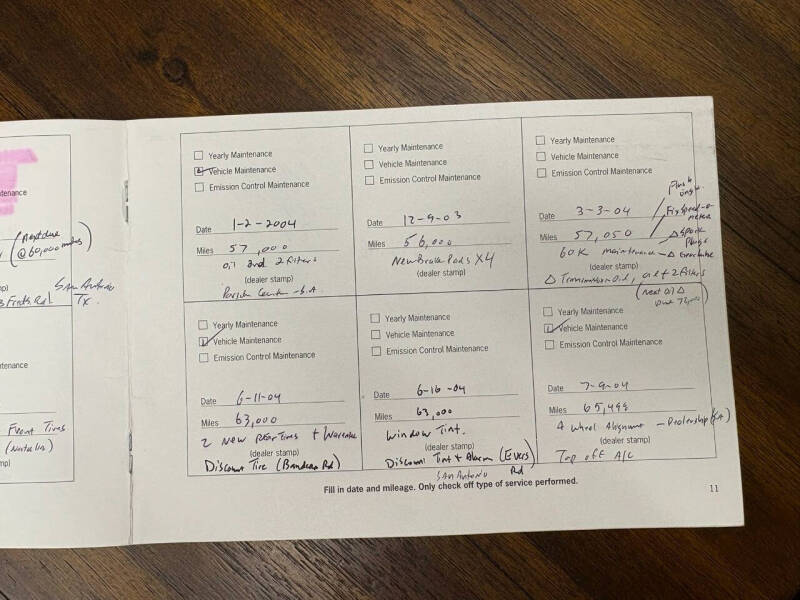 tenance
(next due
@ 60,000 miles)
San Antonio
Rd TX.
tenance
Front Tires
Yearly Maintenance
Vehicle Maintenance
Emission Control Maintenance
Date 1-2-2004
Miles 57,000
oil and 2 filters
(dealer stamp)
Center - S.A
Yearly Maintenance
Vehicle Maintenance
Emission Control Maintenance
Date 12-9-03
Miles 56,000
New Brake Pads X4
(dealer stamp)
Yearly Maintenance
Vehicle Maintenance
Emission Control Maintenance
Date 3-3-04
Miles 57,050
Δ Spark
Plugs
60K maintenance
(dealer stamp)
Δ Transmission oil, 2 filters
(next oil Δ
Yearly Maintenance
Vehicle Maintenance
Emission Control Maintenance
Date 6-11-04
Miles 63,000
2 New Rear Tires +
(dealer stamp)
Discount Tire (Bandera Rd)
Yearly Maintenance
Vehicle Maintenance
Emission Control Maintenance
Date 6-16-04
Miles 63,000
Window Tint.
(dealer stamp)
Discount Tint + Alarm (Evers
San Antonio Rd
Yearly Maintenance
Vehicle Maintenance
Emission Control Maintenance
Date 7-9-04
Miles 65,499
4 Wheel Alignment - Dealership (SA)
(dealer stamp)
Top off A/C
Fill in date and mileage. Only check off type of service performed.
11